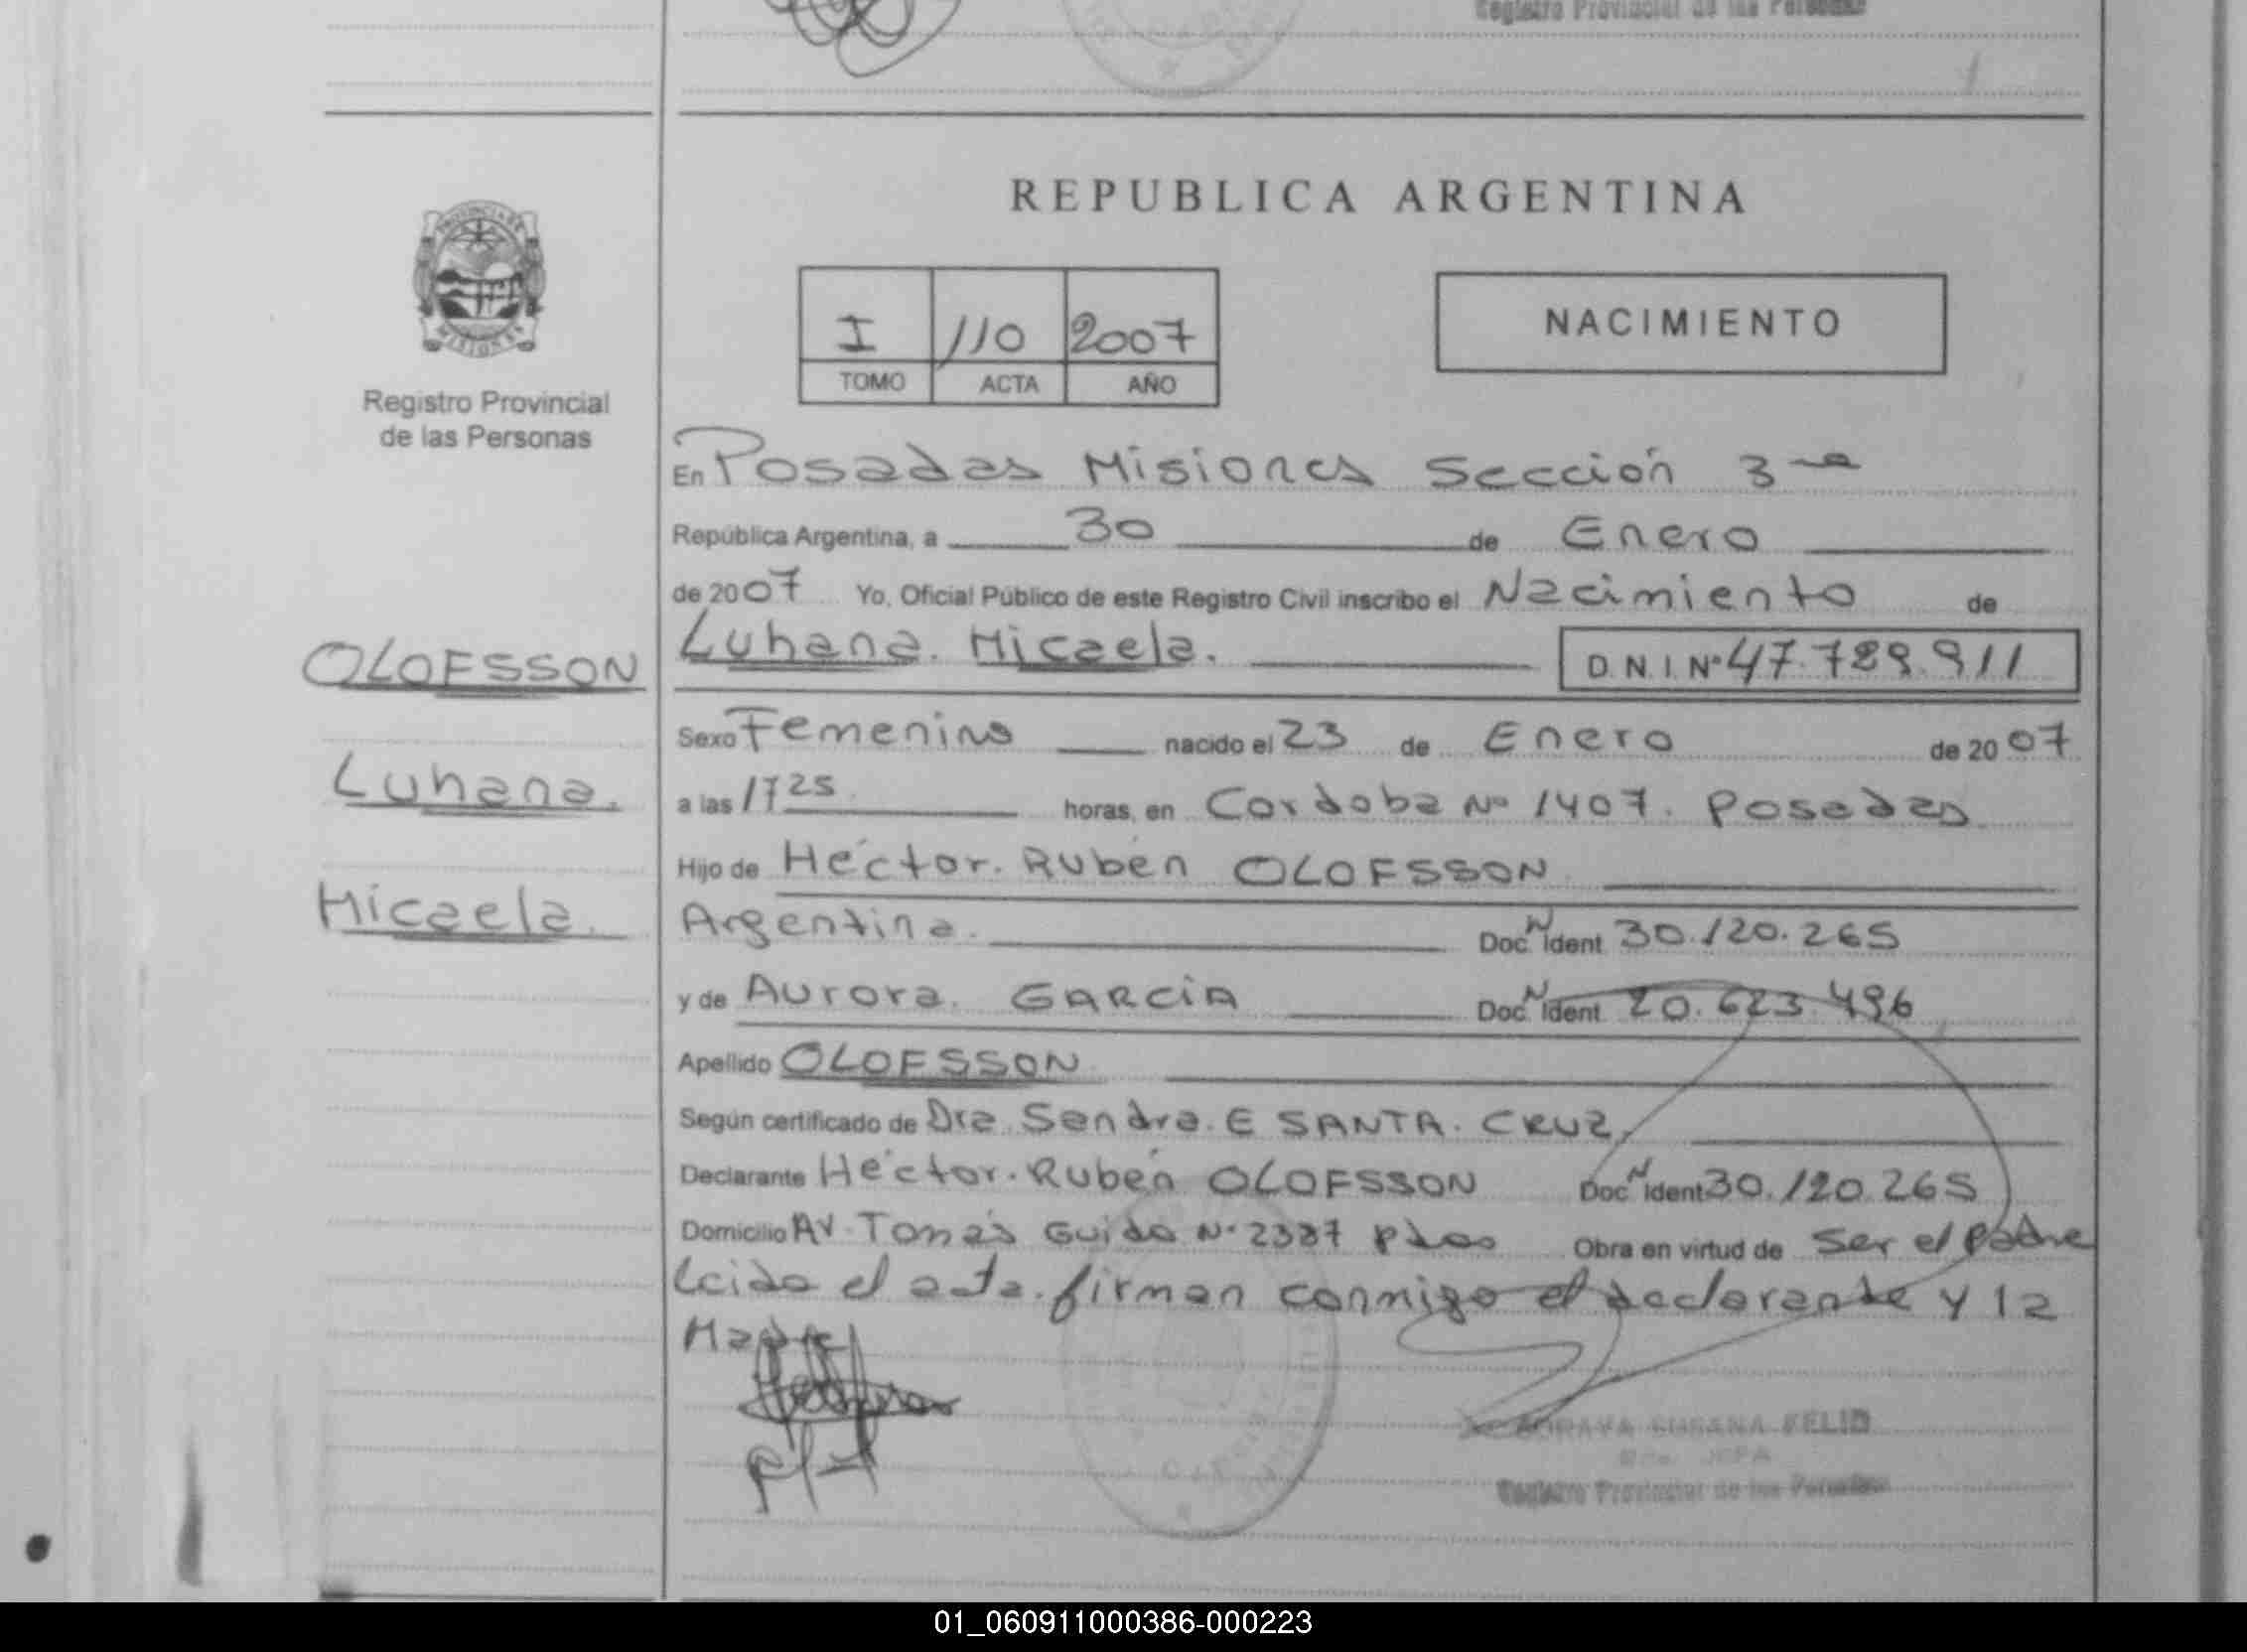 Registro Provincial de las Personas
REPUBLICA ARGENTINA
I 110 2007
TOMO ACTA AÑO
NACIMIENTO
PROVINCIA DE
MISIONES
Registro Provincial
de las Personas
OLOFSSON
Luhana.
Micaela.
En Posadas Misiones Sección 3ra
República Argentina, a 30 de Enero
de 2007 Yo, Oficial Público de este Registro Civil inscribo el Nacimiento de
Luhana. Micaela. D.N.I. Nº 47.789.911
Sexo Femenino nacido el 23 de Enero de 2007
a las 1725 horas, en Cordoba Nº 1407. Posadas
Hijo de Héctor. Rubén OLOFSSON
Argentina. Doc. N Ident. 30.120.265
y de Aurora. GARCÍA Doc. N Ident. 20.623.496
Apellido OLOFSSON
Según certificado de Dra. Sandra. E SANTA. CRUZ.
Declarante Héctor. Rubén OLOFSSON Doc. N Ident 30.120.265
Domicilio AV. Tomás Guido Nº 2387 Pdas Obra en virtud de Ser el Padre
Leida el acta. firman conmigo el declarante y la
Madre
SORAYA SUSANA FELIP
JEFA
Registro Provincial de las Personas
01_060911000386-000223